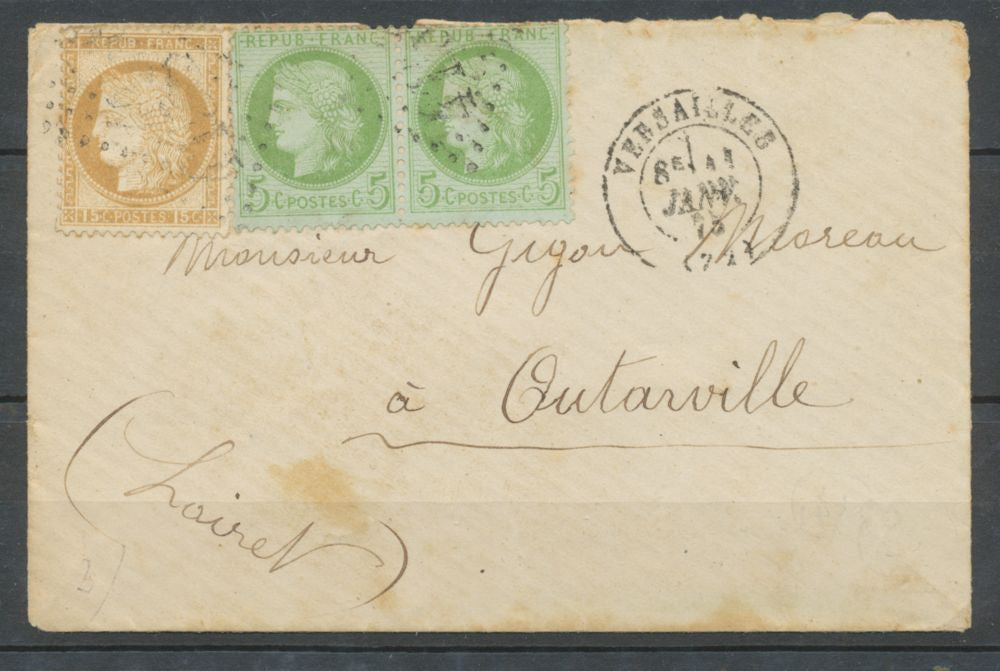 REPUB · FRANC
15 C · POSTES · 15 C
REPUB · FRANC ·
5 · C · POSTES · C · 5
REPUB · FRANC ·
5 · C · POSTES · C · 5
VERSAILLES
8E
JANV.
Monsieur Gigou Moreau
à Outarville
(Loiret)